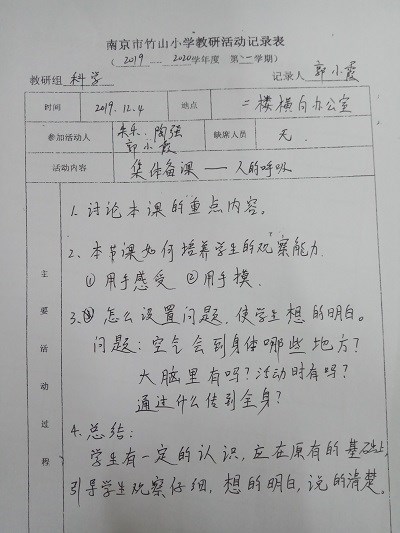 南京市竹山小学教研活动记录表
（ 2019 — 2020 学年度 第 二 学期）
教研组 科学 记录人 郭小霞
时间 2019.12.4 地点 二楼横向办公室
参加活动人 朱乐、陶强 郭小霞 缺席人员 无.
活动内容 集体备课 —— 人的呼吸
主要活动过程
1. 讨论本课的重点内容。
2. 本节课如何培养学生的观察能力.
①用手感受 ②用手摸.
3. 怎么设置问题，使学生想的明白。
问题：空气会到身体哪些地方？
大脑里有吗？活动时有吗？
通过什么传到全身？
4. 总结：
学生有一定的认识，应在原有的基础上，
引导学生观察仔细，想的明白，说的清楚。